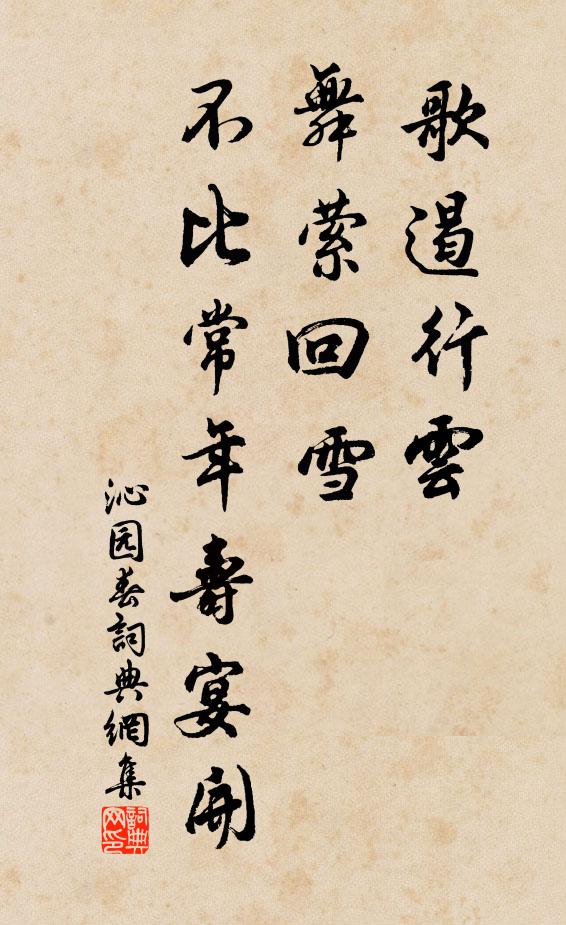 歌遏行雲
舞縈回雪
不比常年壽宴開
沁园春詞典網集
詞典
网印